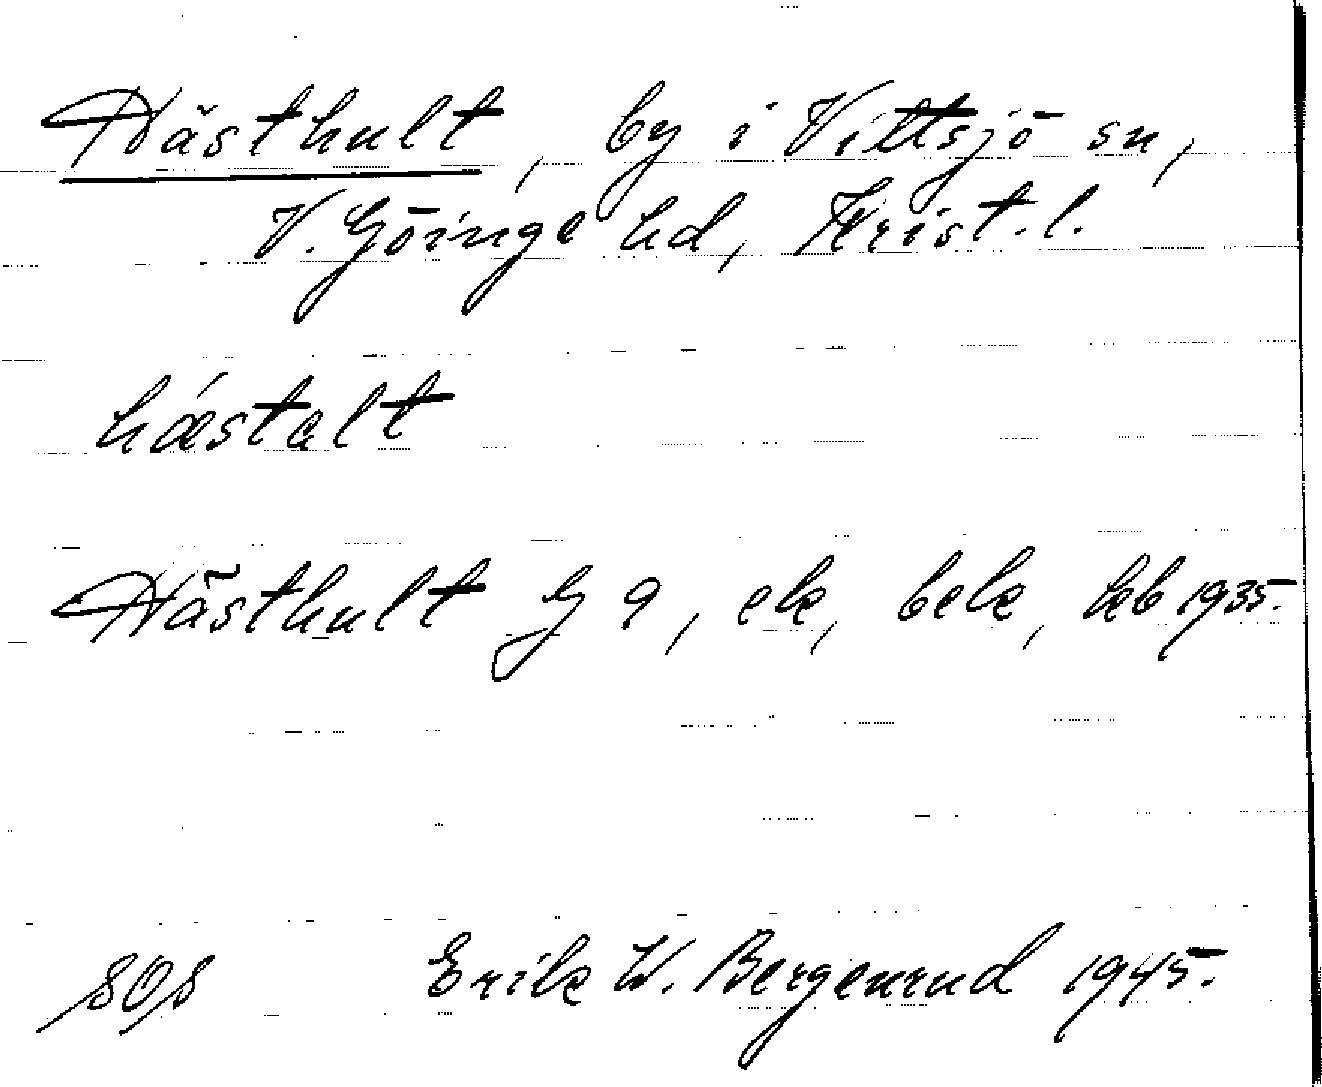 Hästhult, by i Vittsjö sn,
V. Göinge hd, Krist. l.
hǽstalt
Hästhult G 9, ek, bek, kb 1935.
SOS Erik W. Bergenrud 1945.